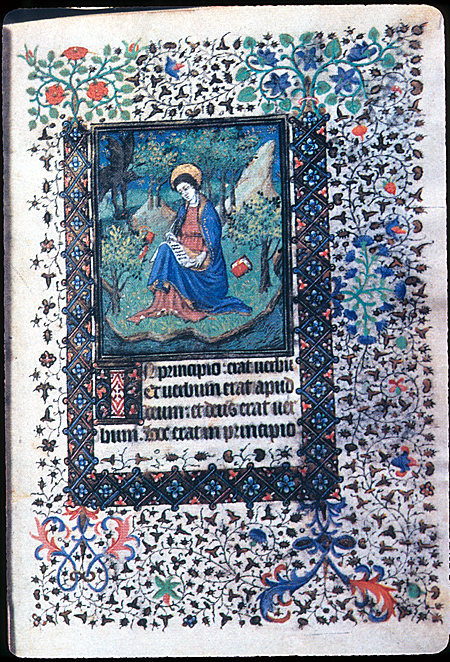 IN principio: erat verbu
Et verbum erat apud
deum: et deus erat ver
bum. hoc erat in principio